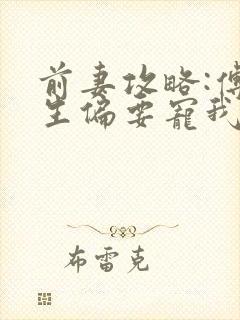 前妻攻略:傅
生偏要宠我
布雷克